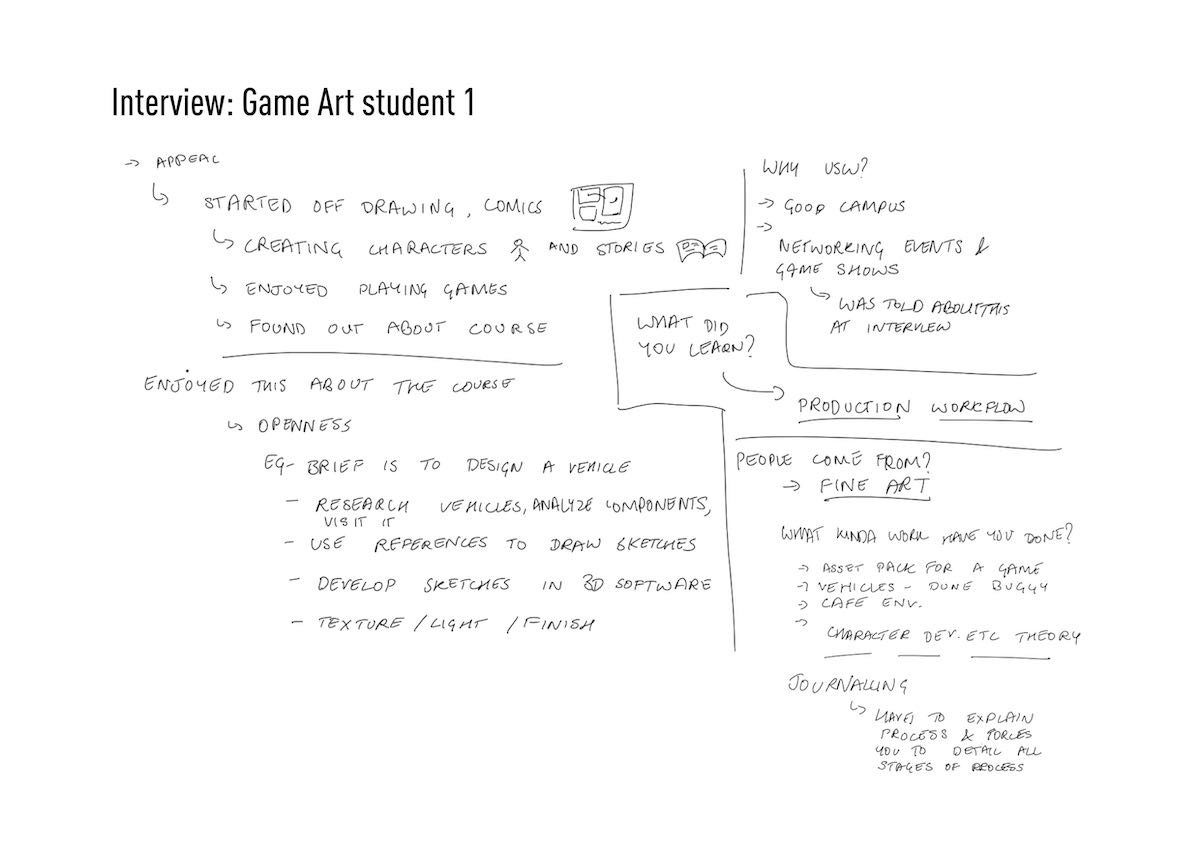 Interview: Game Art student 1
→ APPEAL
↳ STARTED OFF DRAWING, COMICS
↳ CREATING CHARACTERS AND STORIES
↳ ENJOYED PLAYING GAMES
↳ FOUND OUT ABOUT COURSE
ENJOYED THIS ABOUT THE COURSE
↳ OPENNESS
EG- BRIEF IS TO DESIGN A VEHICLE
- RESEARCH VEHICLES, ANALYZE COMPONENTS,
VISIT IT
- USE REFERENCES TO DRAW SKETCHES
- DEVELOP SKETCHES IN 3D SOFTWARE
- TEXTURE / LIGHT / FINISH
WHY USW?
→ GOOD CAMPUS
→
NETWORKING EVENTS &
GAME SHOWS
↳ WAS TOLD ABOUT THIS
AT INTERVIEW
WHAT DID
YOU LEARN?
→ PRODUCTION WORKFLOW
PEOPLE COME FROM?
→ FINE ART
WHAT KINDA WORK HAVE YOU DONE?
→ ASSET PACK FOR A GAME
→ VEHICLES - DUNE BUGGY
→ CAFE ENV.
→
CHARACTER DEV. ETC THEORY
JOURNALLING
↳ HAVE TO EXPLAIN
PROCESS & FORCES
YOU TO DETAIL ALL
STAGES OF PROCESS